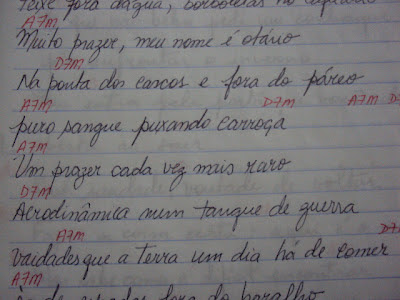 Peixe fora d'água, borboletas no aquário
A7M
Muito prazer, meu nome é otário
D7M
Na ponta dos cascos e fora do páreo
A7M D7M A7M D
puro sangue puxando carroça
A7M
Um prazer cada vez mais raro
D7M
Aerodinâmica num tanque de guerra
A7M D7
vaidades que a terra um dia há de comer
A7M
fora do baralho